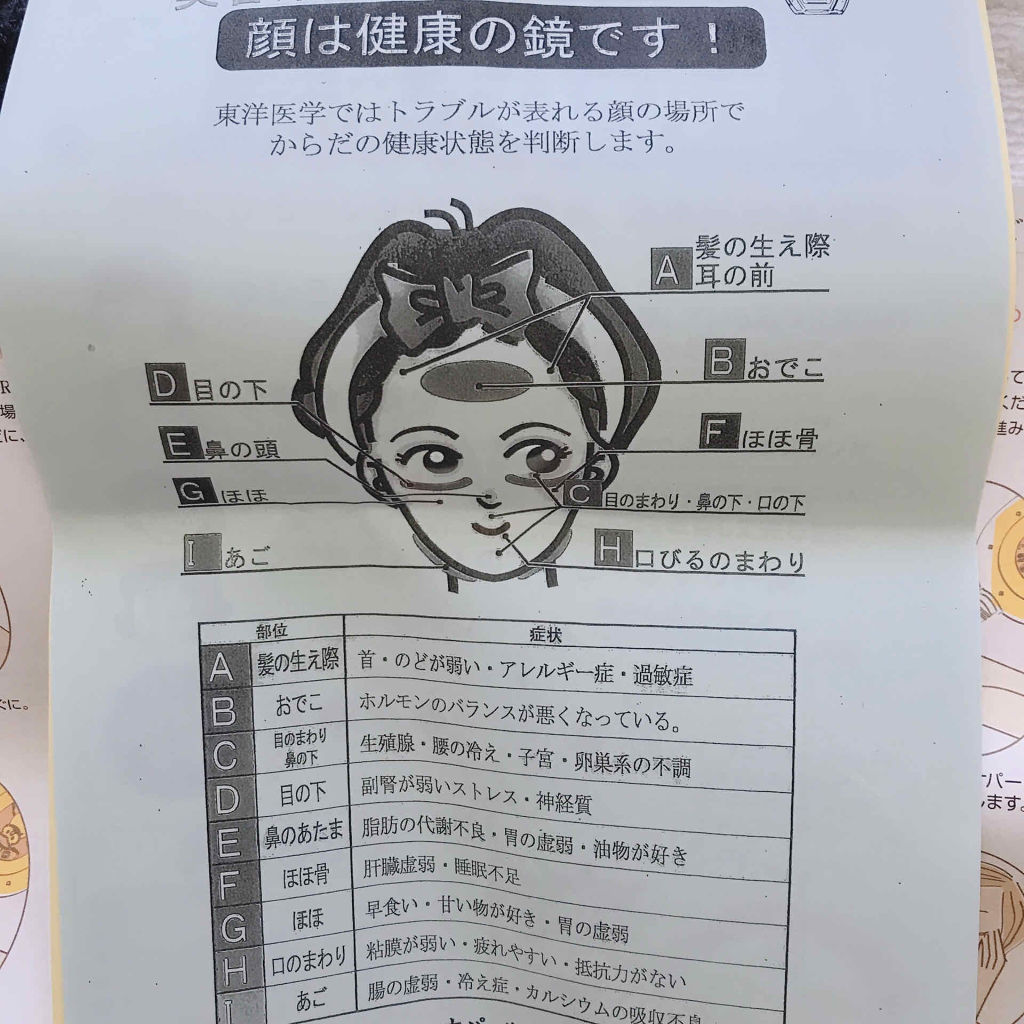 顔は健康の鏡です！
東洋医学ではトラブルが表れる顔の場所で
からだの健康状態を判断します。
A 髪の生え際
耳の前
B おでこ
D 目の下
F ほほ骨
E 鼻の頭
G ほほ
C 目のまわり・鼻の下・口の下
I あご
H 口びるのまわり
部位 症状
A 髪の生え際 首・のどが弱い・アレルギー症・過敏症
B おでこ ホルモンのバランスが悪くなっている。
C 目のまわり 鼻の下 生殖腺・腰の冷え・子宮・卵巣系の不調
D 目の下 副腎が弱いストレス・神経質
E 鼻のあたま 脂肪の代謝不良・胃の虚弱・油物が好き
F ほほ骨 肝臓虚弱・睡眠不足
G ほほ 早食い・甘い物が好き・胃の虚弱
H 口のまわり 粘膜が弱い・疲れやすい・抵抗力がない
I あご 腸の虚弱・冷え症・カルシウムの吸収不良
R
場
に、
ぐに。
て
くだ
進み
パー
ます。